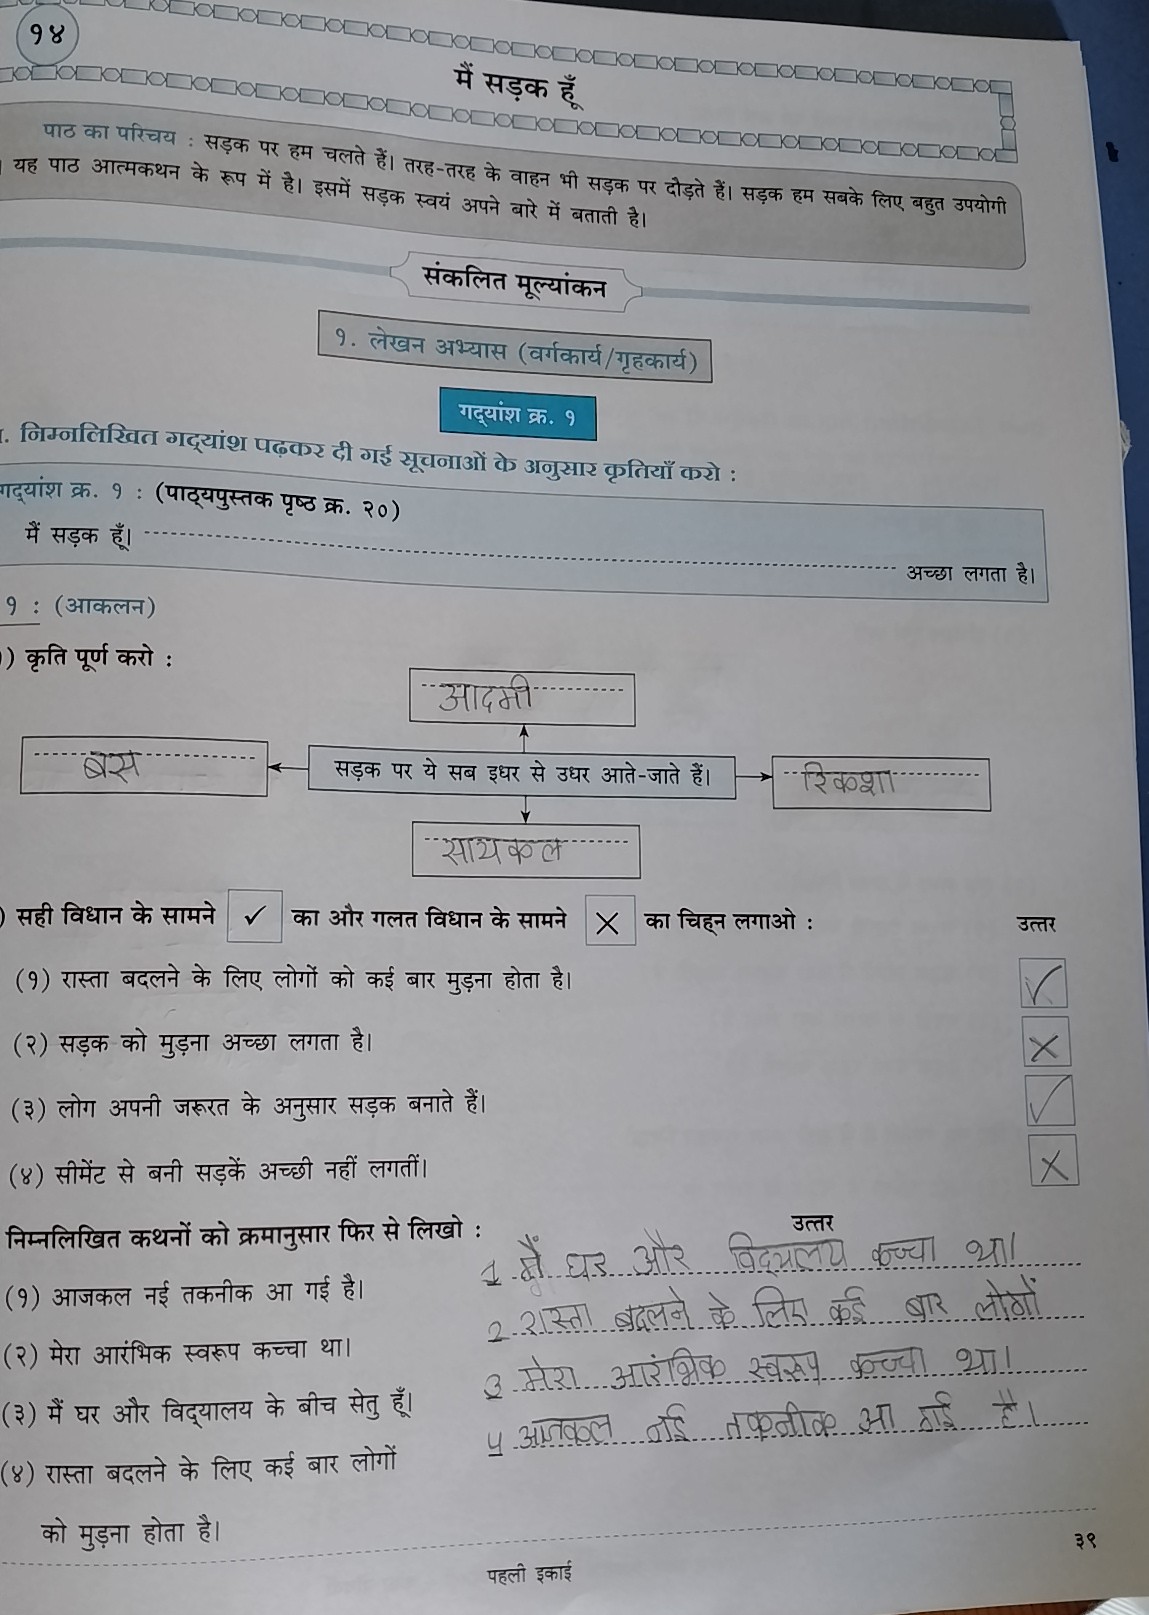 १४
मैं सड़क हूँ
पाठ का परिचय : सड़क पर हम चलते हैं। तरह-तरह के वाहन भी सड़क पर दौड़ते हैं। सड़क हम सबके लिए बहुत उपयोगी
यह पाठ आत्मकथन के रूप में है। इसमें सड़क स्वयं अपने बारे में बताती है।
संकलित मूल्यांकन
१. लेखन अभ्यास (वर्गकार्य/गृहकार्य)
गद्यांश क्र. १
निम्नलिखित गद्यांश पढ़कर दी गई सूचनाओं के अनुसार कृतियाँ करो :
गद्यांश क्र. १ : (पाठ्यपुस्तक पृष्ठ क्र. २०)
मैं सड़क हूँ। अच्छा लगता है।
१ : (आकलन)
) कृति पूर्ण करो :
आदमी
बस सड़क पर ये सब इधर से उधर आते-जाते हैं। रिकशा
सायकल
) सही विधान के सामने ✓ का और गलत विधान के सामने ✗ का चिह्न लगाओ : उत्तर
(१) रास्ता बदलने के लिए लोगों को कई बार मुड़ना होता है। ✓
(२) सड़क को मुड़ना अच्छा लगता है। ✗
(३) लोग अपनी जरूरत के अनुसार सड़क बनाते हैं। ✓
(४) सीमेंट से बनी सड़कें अच्छी नहीं लगतीं। ✗
निम्नलिखित कथनों को क्रमानुसार फिर से लिखो : उत्तर
(१) आजकल नई तकनीक आ गई है। 1 मैं घर और विद्यालय कच्चा था।
(२) मेरा आरंभिक स्वरूप कच्चा था। 2 रास्ता बदलने के लिए कई बार लोगों
(३) मैं घर और विद्यालय के बीच सेतु हूँ। 3 मेरा आरंभिक स्वरूप कच्चा था।
(४) रास्ता बदलने के लिए कई बार लोगों 4 आजकल नई तकनीक आ गई है।
को मुड़ना होता है।
पहली इकाई
३९